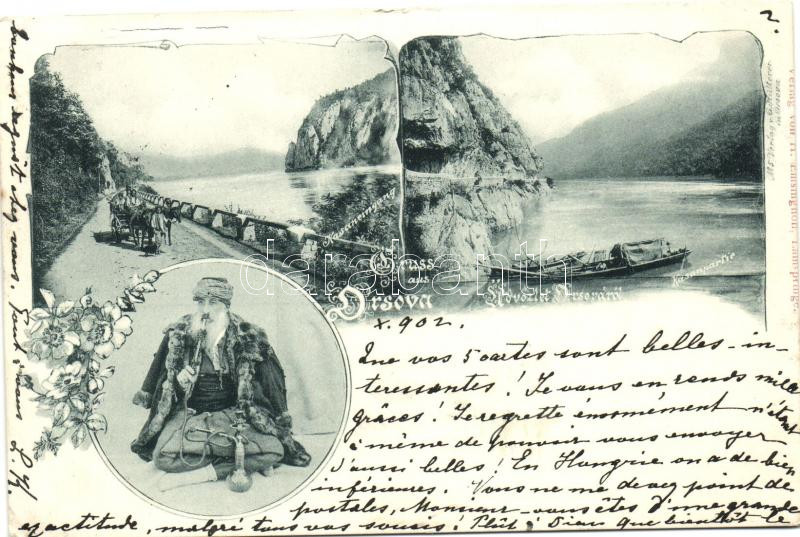 2.
Kazanumgang
Kazanpartie
Gruss
aus
Orsova
Üdvözlet Orsováról
darabanth
x. 902.
Que vos 5 cartes sont belles - in-
teressantes! Je vous en rends mille
grâces! Je regrette énormément n'étant
à même de pouvoir vous envoyer
d'aussi belles! En Hongrie on a de bien
inférieures. Vous ne me devez point de
postales, Monsieur - vous êtes d'une grande
exactitude, malgré tous vos soucis! Plût à Dieu que bientôt le